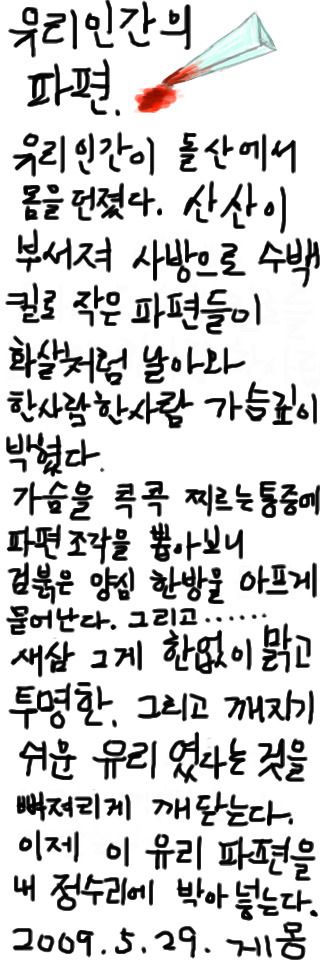 유리인간의
파편.
유리인간이 돌산에서
몸을 던졌다. 산산이
부서져 사방으로 수백
킬로 작은 파편들이
화살처럼 날아와
한사람한사람 가슴깊이
박혔다.
가슴을 콕콕 찌르는통증에
파편조각을 뽑아보니
검붉은 양심 한방울 아프게
묻어난다. 그리고......
새삼 그게 한없이 맑고
투명한, 그리고 깨지기
쉬운 유리였다는 것을
뼈져리게 깨닫는다.
이제 이 유리 파편을
내 정수리에 박아 넣는다.
2009.5.29. 게몽